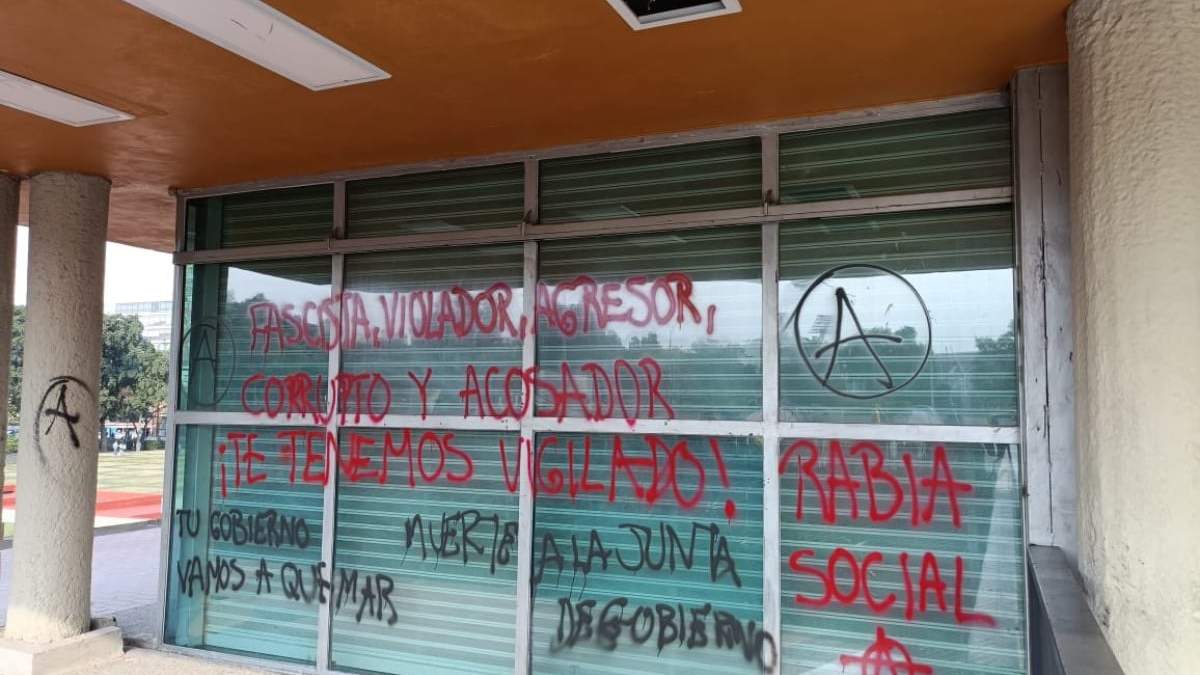 FASCISTA, VIOLADOR, AGRESOR,
CORRUPTO Y ACOSADOR
¡TE TENEMOS VIGILADO!
TU GOBIERNO
VAMOS A QUEMAR
MUERTE A LA JUNTA
DE GOBIERNO
RABIA
SOCIAL
A
A
A
A